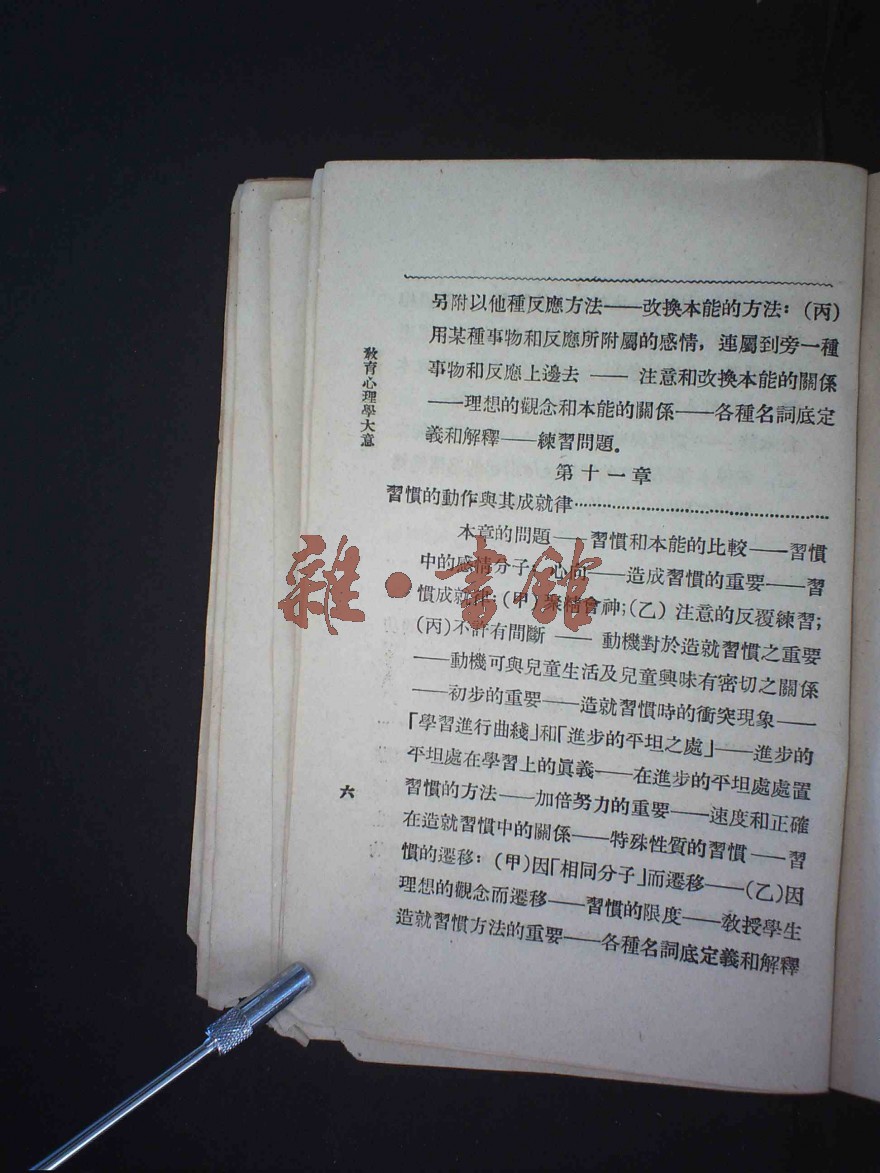 另附以他種反應方法——改換本能的方法：(丙)
用某種事物和反應所附屬的感情，連屬到旁一種
事物和反應上邊去 —— 注意和改換本能的關係
——理想的觀念和本能的關係——各種名詞底定
義和解釋——練習問題。
第十一章
習慣的動作與其成就律………………………………
本章的問題——習慣和本能的比較——習慣
中的感情分子：心向——造成習慣的重要——習
慣成就律：(甲)聚精會神；(乙)注意的反覆練習；
(丙)不許有間斷 —— 動機對於造就習慣之重要
——動機可與兒童生活及兒童興味有密切之關係
——初步的重要——造就習慣時的衝突現象——
「學習進行曲綫」和「進步的平坦之處」——進步的
平坦處在學習上的眞義——在進步的平坦處處置
習慣的方法——加倍努力的重要——速度和正確
在造就習慣中的關係——特殊性質的習慣——習
慣的遷移：(甲)因「相同分子」而遷移——(乙)因
理想的觀念而遷移——習慣的限度——敎授學生
造就習慣方法的重要——各種名詞底定義和解釋
敎育心理學大意
六
雜·書館